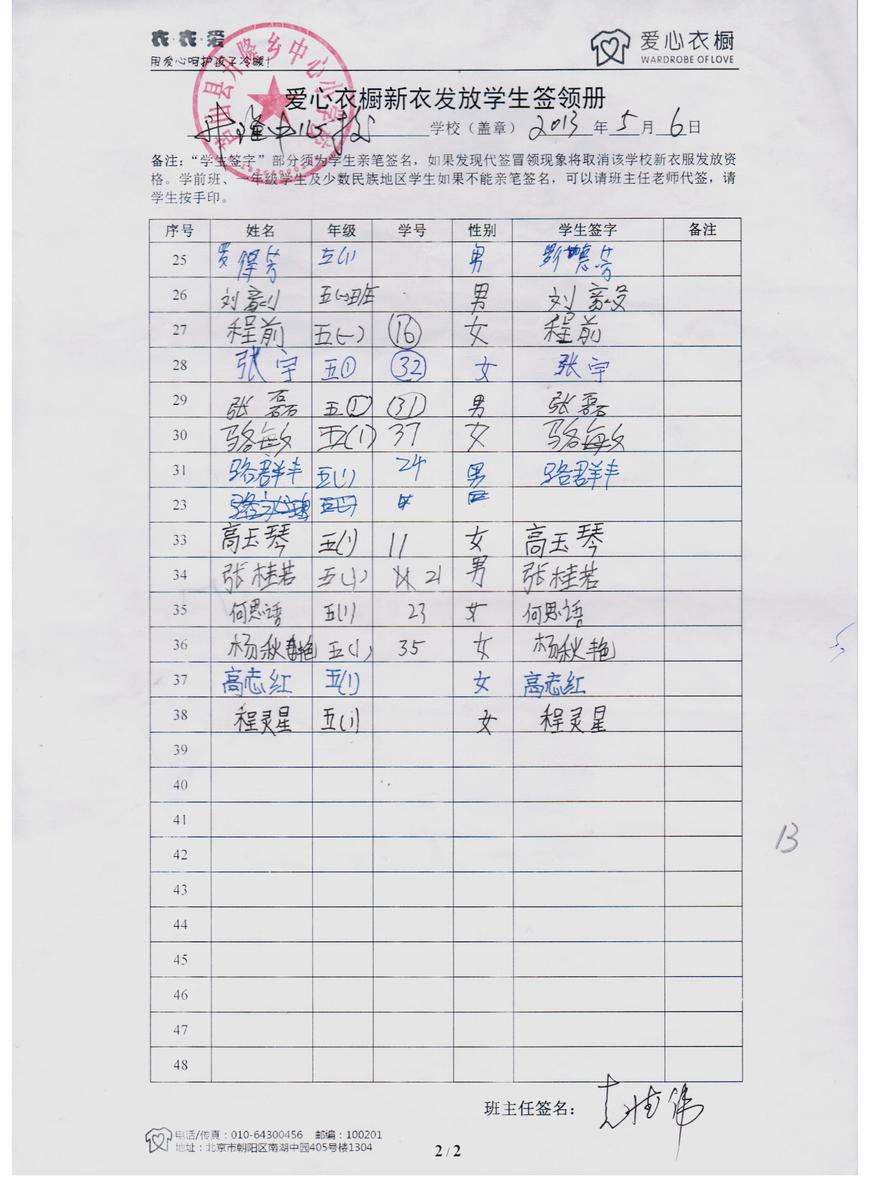 衣·衣·爱
用爱心呵护孩子冷暖!
爱心衣橱
WARDROBE OF LOVE
爱心衣橱新衣发放学生签领册
学校（盖章） 2013 年 5 月 6 日
备注：“学生签字”部分须为学生亲笔签名，如果发现代签冒领现象将取消该学校新衣服发放资
格。学前班、一年级学生及少数民族地区学生如果不能亲笔签名，可以请班主任老师代签，请
学生按手印。
序号 姓名 年级 学号 性别 学生签字 备注
25 五(1) 男
26 刘 五(一)班 男 刘
27 程前 五(一) 16 女 程前
28 张宇 五① 32 女 张宇
29 张磊 五① 31 男 张磊
30 骆敏 五(1) 37 女 骆敏
31 骆君羊丰 五(1) 24 男 骆君羊丰
23
33 高玉琴 五(1) 11 女 高玉琴
34 张桂若 五(1) 21 男 张桂若
35 何思语 五(1) 23 女 何思语
36 杨秋艳 五(1) 35 女 杨秋艳
37 高志红 五(1) 女 高志红
38 程灵星 五(1) 女 程灵星
39
40
41
42
43
44
45
46
47
48
13
班主任签名：
电话/传真：010-64300456 邮编：100201
地址：北京市朝阳区南湖中园405号楼1304
2 / 2